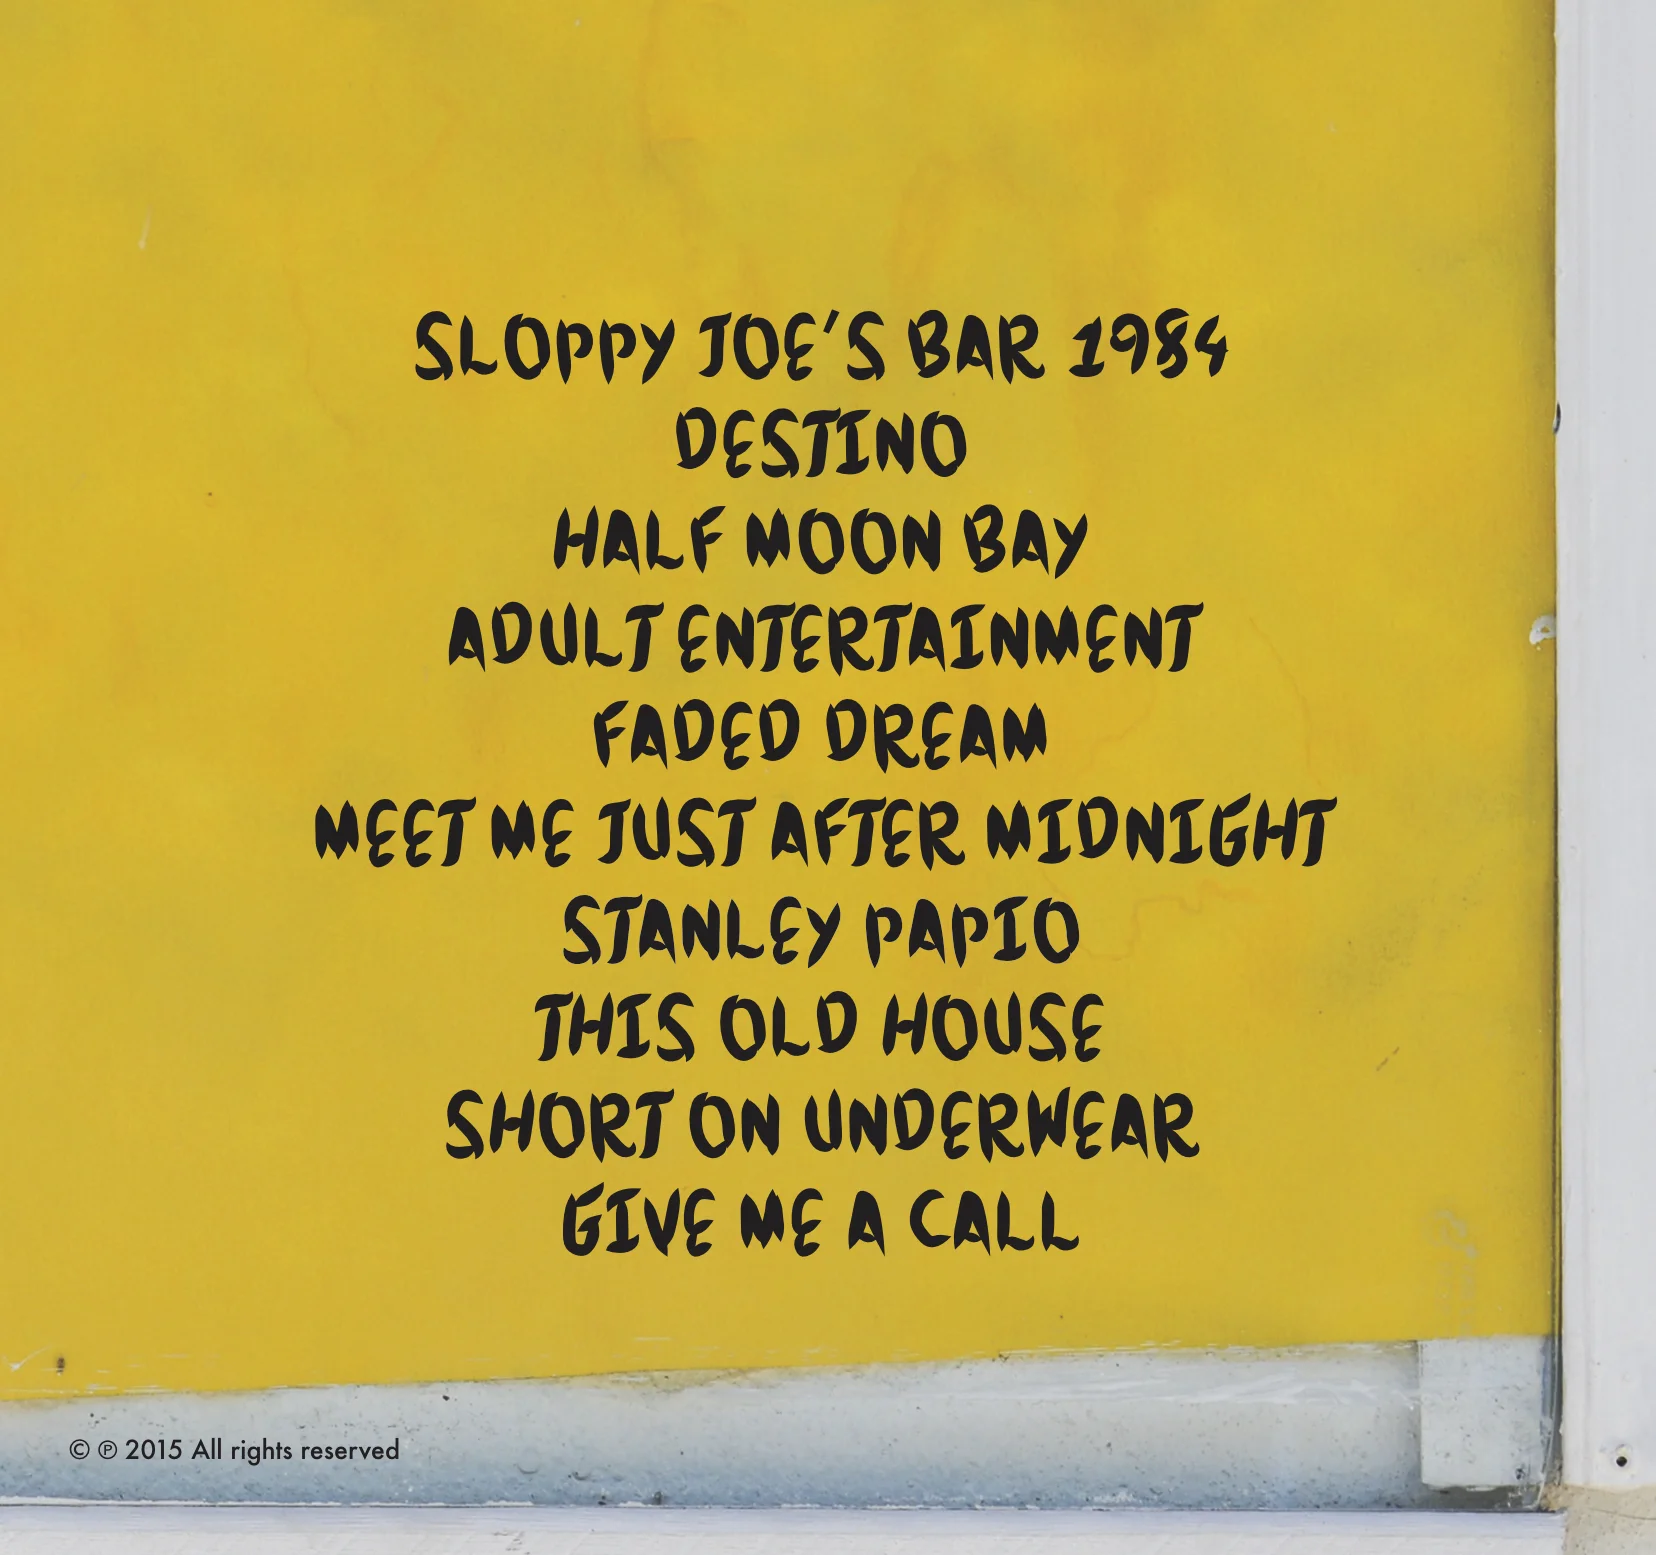 SLOPPY JOE'S BAR 1984
DESTINO
HALF MOON BAY
ADULT ENTERTAINMENT
FADED DREAM
MEET ME JUST AFTER MIDNIGHT
STANLEY PAPIO
THIS OLD HOUSE
SHORT ON UNDERWEAR
GIVE ME A CALL
© ℗ 2015 All rights reserved